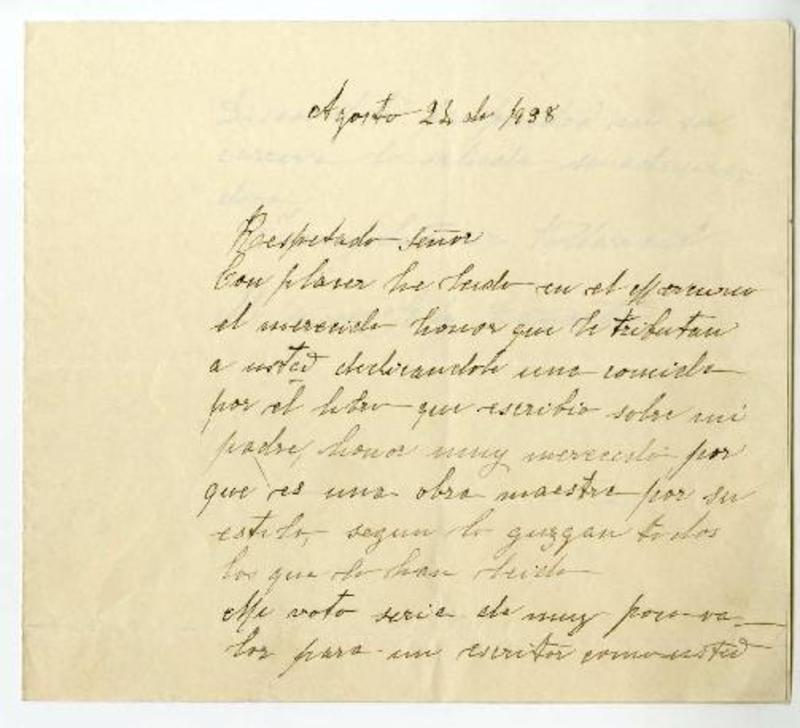 Agosto 24 de 1938
Respetado señor
Con placer he leido en el Mercurio
el merecido honor que le tributan
a usted dedicandole una comida
por el libro que escribio sobre mi
padre, honor muy merecido por
que es una obra maestra por su
estilo, segun lo guzgan todos
los que lo han leido
Mi voto seria de muy poco va_
lor para un escritor como usted